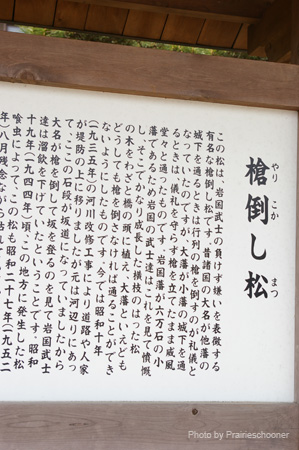 槍倒し松
やりこかまつ
この松は、岩国武士の負けず嫌いを表徴する
有名な槍倒し松です。昔諸国の大名が他藩の
城下を通るときは行列の槍を倒すのが礼儀と
なっていたのですが、大藩が小藩の城下を通
るときは、儀礼を守らず槍を立てたまま威風
堂々と通ったものです。岩国藩が六万石の小
藩であるため岩国の武士達はこれを見て憤慨
し、そこでかなり成長した横枝のはった松
の木をわざと橋の頭に植え、大藩といえども
どうしても槍を倒さなければ通ることができ
ないようにしたものです。今では昭和十年
(九三五年)の河川改修工事により道路や人家
が堤防の上に移りましたが元は河辺りにあっ
て、ここの石段が坂道になっていましたから
大名が槍を倒して坂を登るのを見て岩国武士
達は溜飲を下げていたということです。昭和
十九年(一九四四年)頃、この地方に発生した松
喰虫によって、この松も昭和二十七年(一九五二
年)八月残念ながら
Photo by Prairieschooner